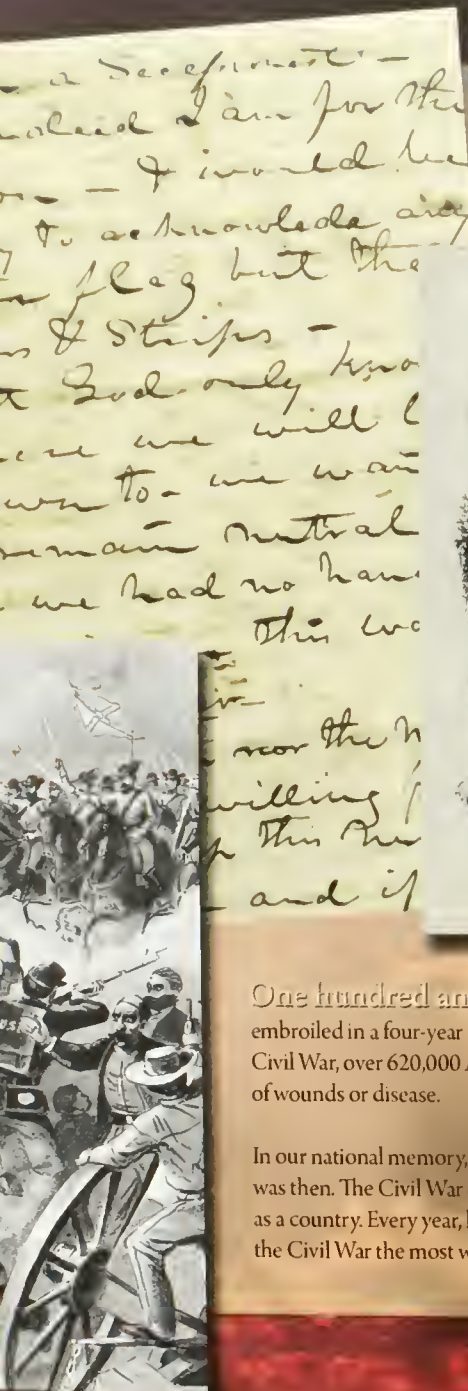 a Secessionist –
indeed I am for the
– I would be
to acknowledg any
flag but the
& Strips –
God only kno
we will b
to – we wan
remain nutral
we had no han
This wa
nor the N
willing
this
– and if
One hundred an
embroiled in a four-year
Civil War, over 620,000
of wounds or disease.
In our national memory,
was then. The Civil War
as a country. Every year,
the Civil War the most w
US